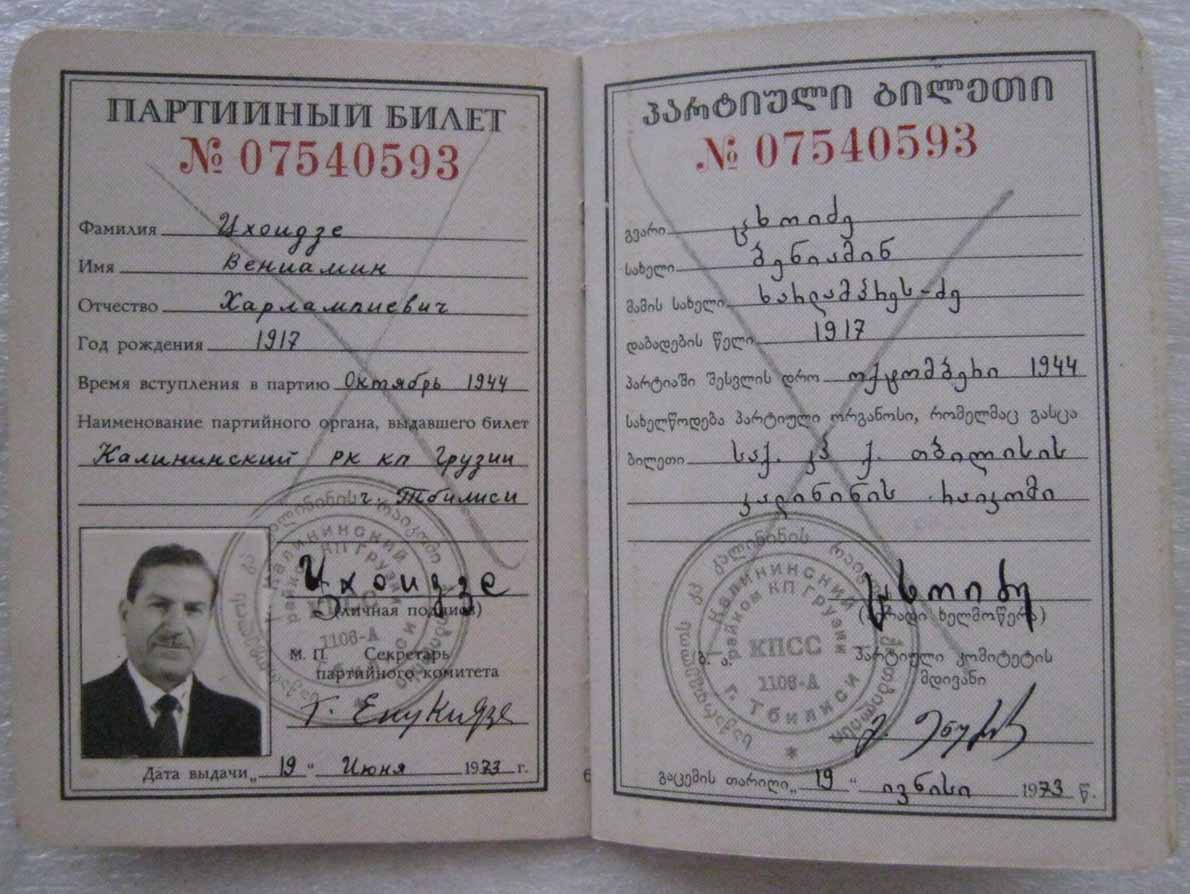 ПАРТИЙНЫЙ БИЛЕТ
№ 07540593
Фамилия Цхоидзе
Имя Вениамин
Отчество Харлампиевич
Год рождения 1917
Время вступления в партию Октябрь 1944
Наименование партийного органа, выдавшего билет
Калининский РК КП Грузии
г. Тбилиси
Цхоидзе
(Личная подпись)
М. П. Секретарь
партийного комитета
Г. Енукидзе
Дата выдачи „ 19 “ Июня 1973 г.
Калининский
райком КП Грузии
КПСС
1108-А
Тбилиси
პარტიული ბილეთი
№ 07540593
გვარი ცხოიძე
სახელი ბენიამინ
მამის სახელი ხარლამპის-ძე
დაბადების წელი 1917
პარტიაში შესვლის დრო ოქტომბერი 1944
სახელწოდება პარტიული ორგანოსი, რომელმაც გასცა
ბილეთი საქ. კპ ქ. თბილისის
კალინინის რაიკომი
ცხოიძე
(პირადი ხელმოწერა)
ბ. ა. პარტიული კომიტეტის
მდივანი
გაცემის თარიღი „ 19 “ ივნისი 1973 წ.
Калининский
райком КП Грузии
КПСС
1108-А
г. Тбилиси
6